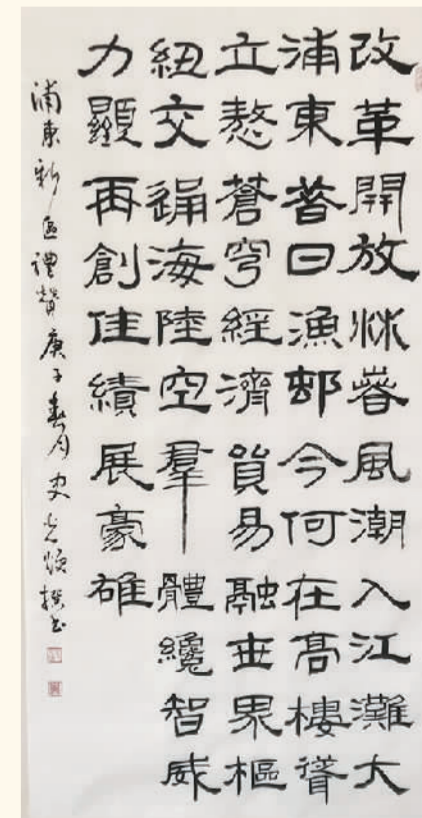 改革開放沐萅風潮入江灘大
浦東昔日漁邨今何在高樓聳
立蒼穹經濟貿易融世界樞
紐交通海陸空羣體纔智威
力顯再創佳績展豪雄
浦東新區禮贊庚子春月史撰书